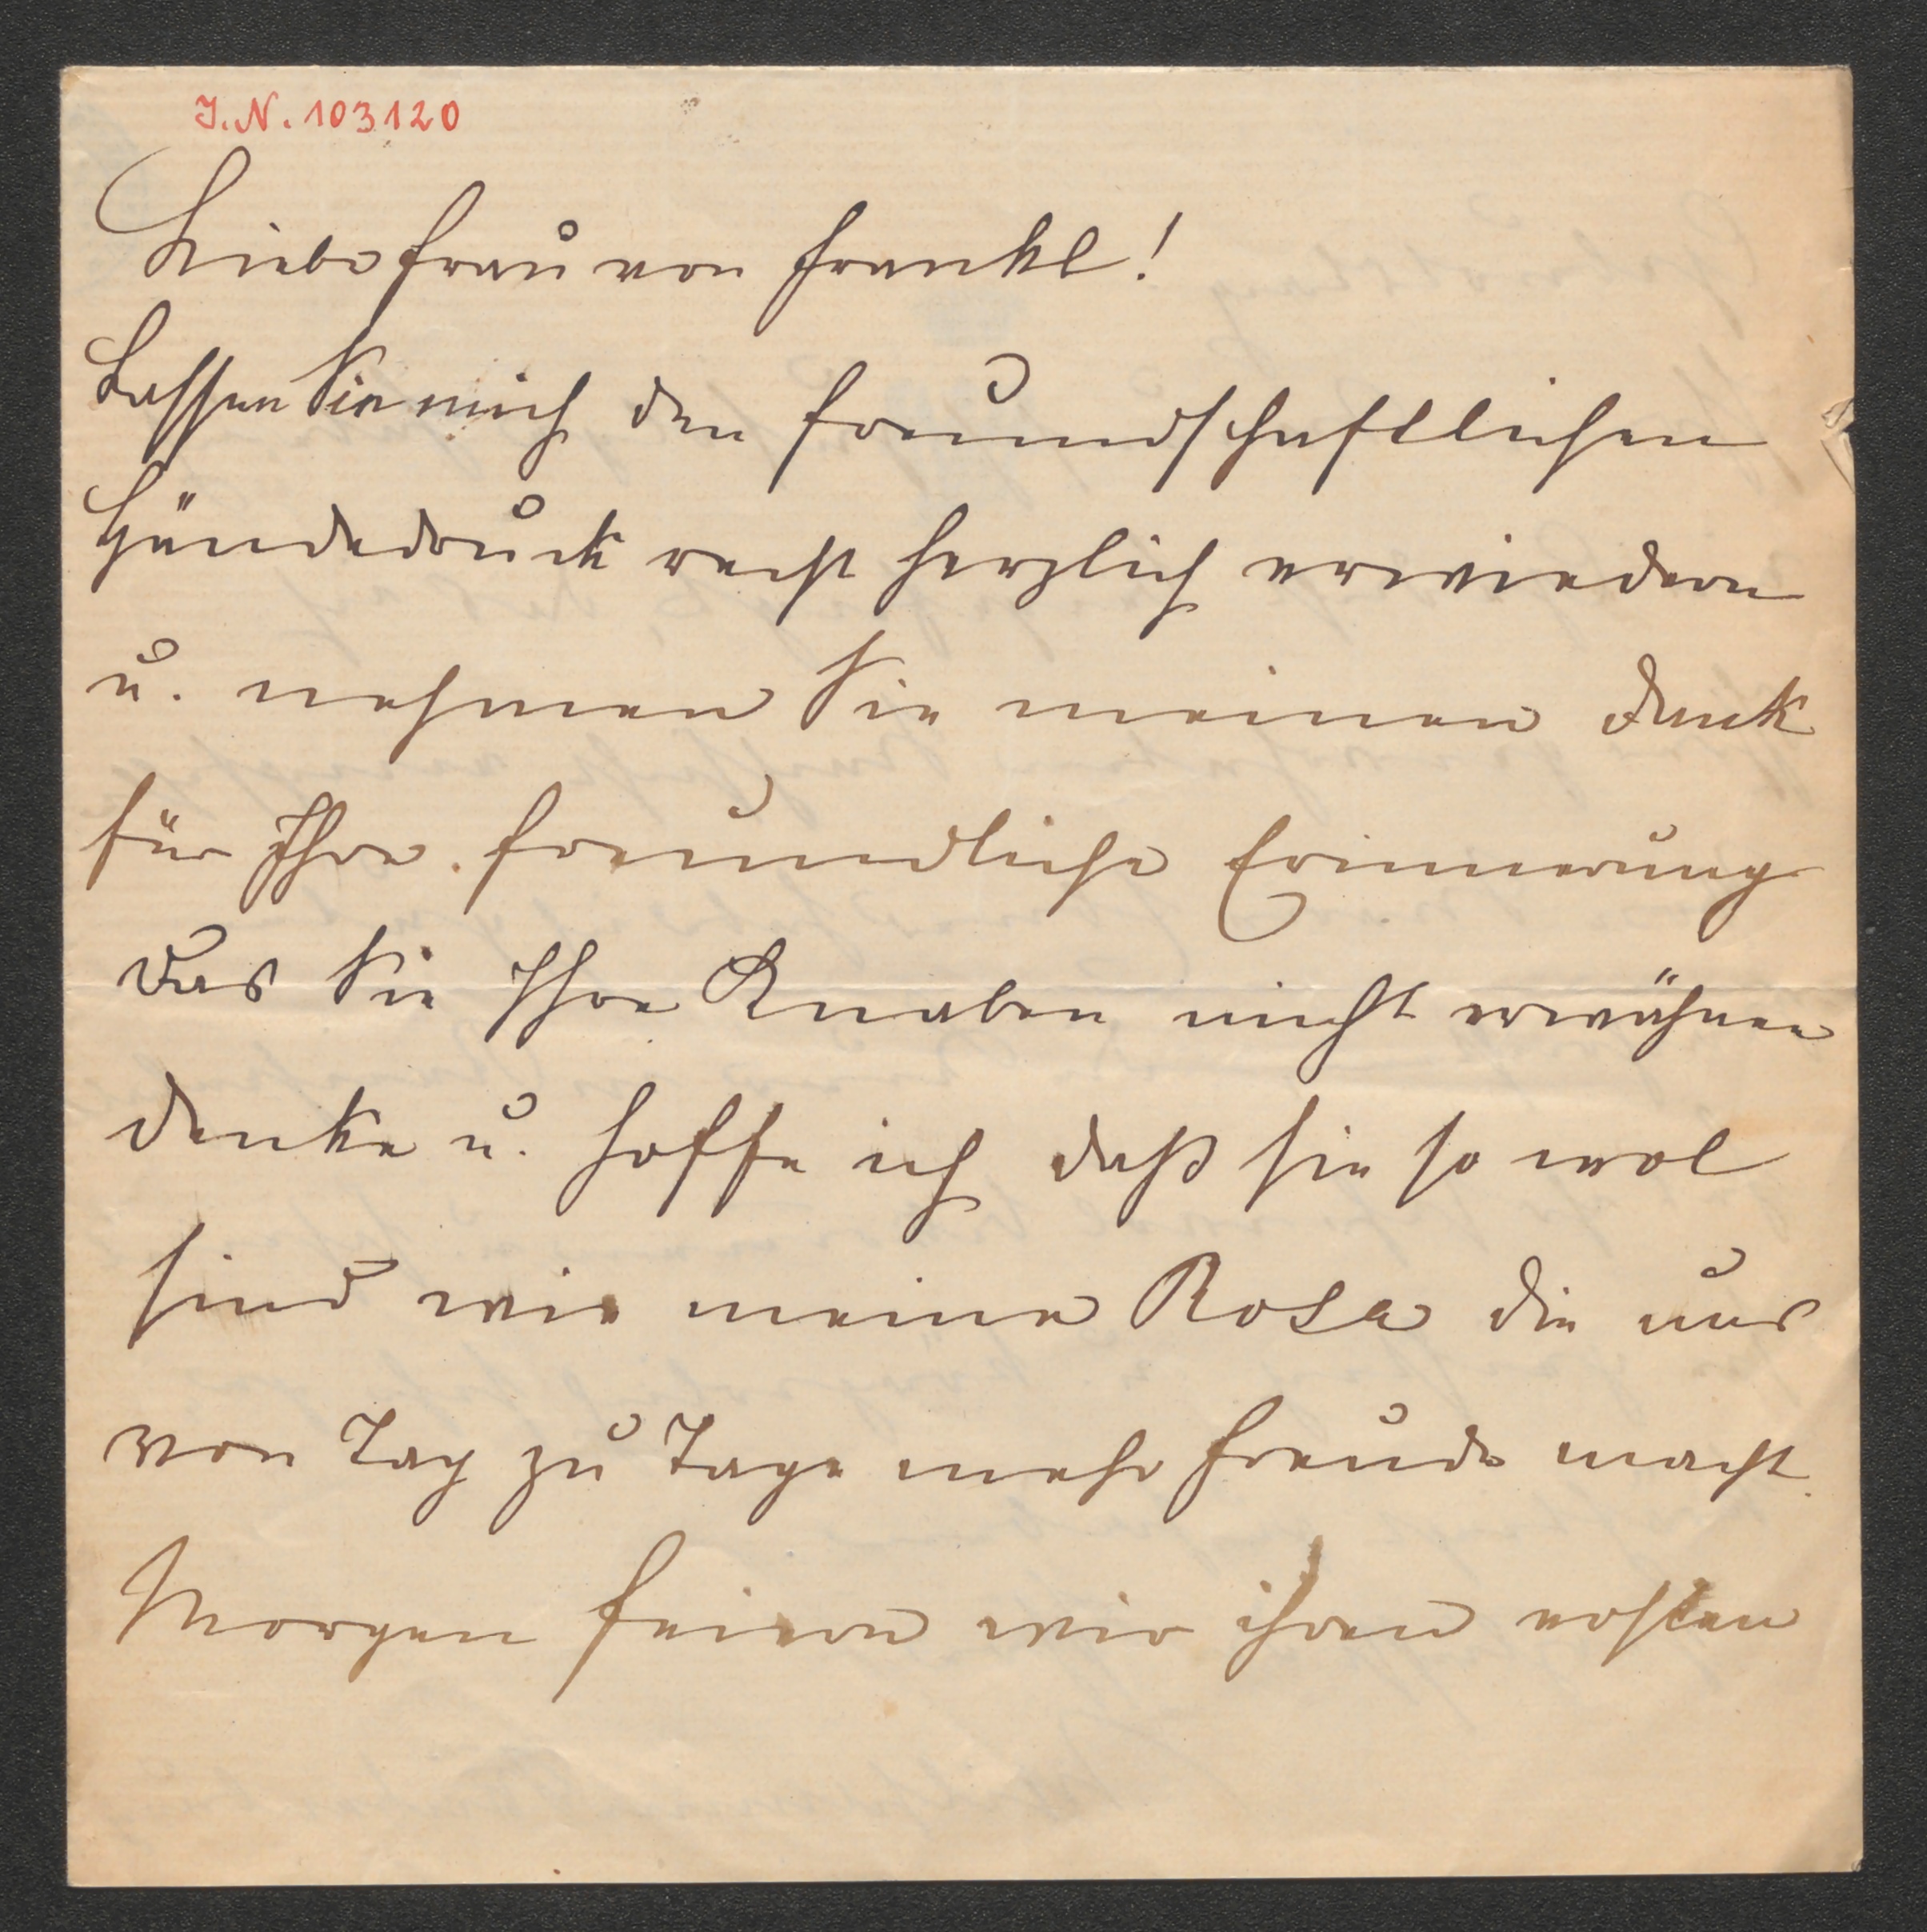 J.N. 103120
Liebe Frau von Frankl!
Lassen Sie mich den freundschaftlichen
Händedruck recht herzlich erwiedern
u. nehmen Sie meinen Dank
für Ihre freundliche Erinnerung
Das Sie Ihre Knaben nicht erwähnen
denke u. hoffe ich daß sie so wol
sind wie meine Rosa die uns
von Tag zu Tage mehr Freude macht.
Morgen feiern wir ihren ersten